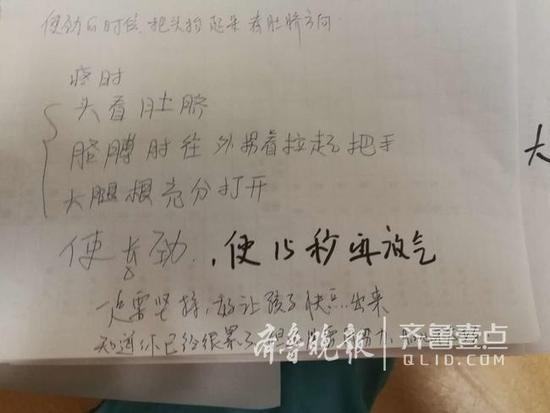 使劲的时候,把头抬起来看肚脐方向.
疼时
头看肚脐
胳膊肘往外拐着拉起把手
大腿根充分打开
使长劲.,使15秒再放气
一定要坚持,好让孩子快点出来
知道你已经很累了
大
齐鲁晚报 齐鲁壹点
QLID.COM